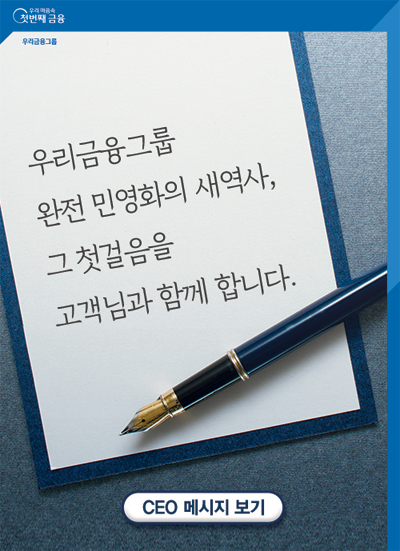 우리 마음속
첫번째 금융
우리금융그룹
우리금융그룹
완전 민영화의 새역사,
그 첫걸음을
고객님과 함께 합니다.
CEO 메시지 보기